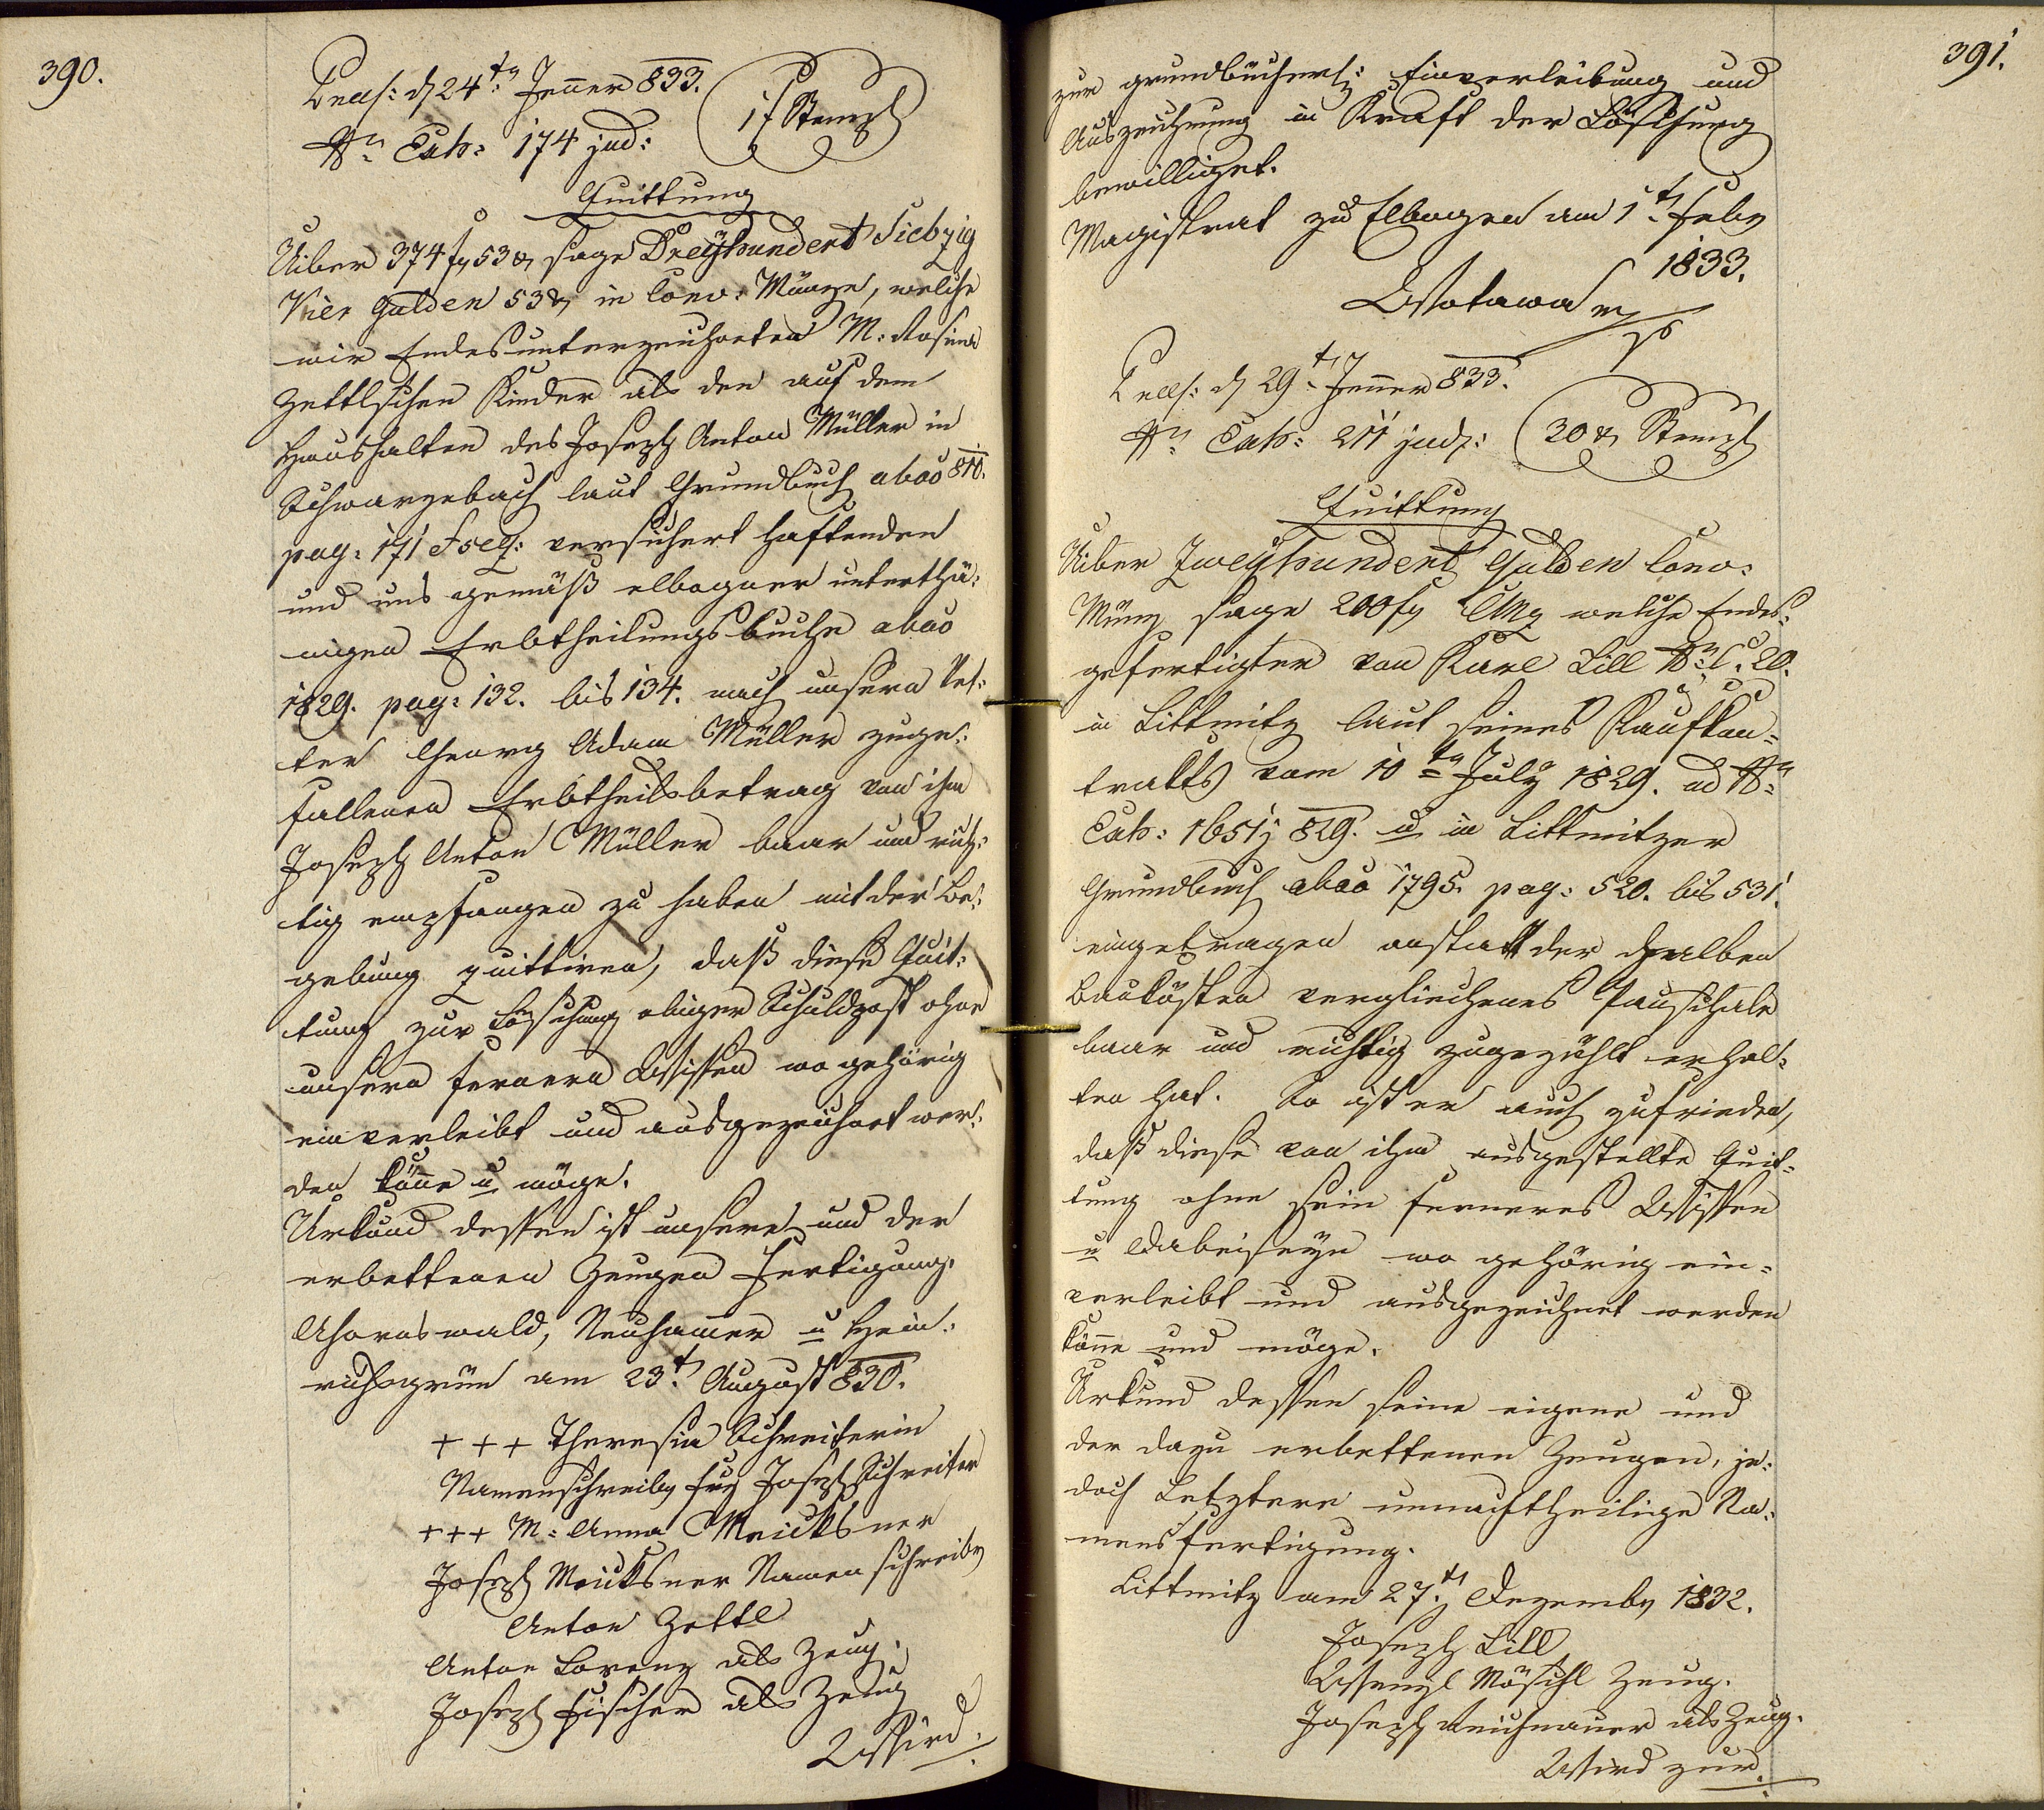 390.
Præs: d 24tn Jenner 833.
Nro Exh: 174 jud:
1 f Stempl
Quittung
Uiber 374 f 53 x sage Dreyhundert Siebzig
Vier Gulden 53 x in Conv: Münze, welche
wir Endesunterzeichneten M: Rosina
Zettlischen Kinder als den auf dem
Haushalten des Joseph Anton Müller in
Schwarzebach laut Grundbuch abao 810.
pag: 171 & seq: versichert haftenden
und uns gemäß elbogner unterthä:
nigen Erbtheilungsbuche abao
1829. pag: 132. bis 134. nach unsern Vet:
ter Georg Adam Müller zuge:
fallenen Erbtheilsbetrag von ihm
Joseph Anton Müller baar und rich:
tig empfangen zu haben mit der Be:
gebung quittiren, daß diese Quit:
tung zur Löschung obiger Schuldpost ohne
unsern fernern Wissen wo gehörig
einverleibt und ausgezeichnet wer:
den könne u möge.
Urkund dessen ist unsere und der
erbettenen Zeugen Fertigung.
Ahornswald, Neuhammer u Hein:
richsgrün am 23t August 830.
+++ Theresia Schreiterin
Namenschreiber Joseph Schreiter
+++ M: Anna Meicksner
Joseph Meicksner Namenschreiber
Anton Zettl
Anton Lorenz als Zeug.
Joseph Fischer als Zeug
Wird.
391.
zur grundbücherl: Einverleibung und
Auszeichnung in Kraft der Löschung
bewilliget.
Magistrat zu Elbogen am 1tn Feber
1833.
Wotawa mp
Præs: d 29tn Jenner 833.
Nro Exh: 211 jud:
30 x Stempl
Quittung
Uiber Zweyhundert Gulden Conv:
Münz sage 200 f CMz welche Endes:
gefertigter von Karl Lill Nro C. 20.
in Littmitz laut seines Kaufkon=
trakts vom 10tn July 1829. ad Nro
Exh: 1651j 829. u in Littmitzer
Grundbuch abao 1795. pag: 520. bis 531.
eingetragen anstatt der
Baukösten verglichenes Pauschale
baar und richtig zugezählt erhal:
ten hat. So ist er auch zufrieden,
daß diese von ihm ausgestellte Quit=
tung ohne sein ferneres Wissen
u Dabeiseyn wo gehörig ein=
verleibt und ausgezeichnet werden
könne und möge.
Urkund dessen seine eigene und
der dazu erbettenen Zeugen, je:
doch Letztere unnachtheilige Na:
mensfertigung.
Littmitz am 27tn Dezember 1832.
Joseph Lill
Wenzl Möschl Zeug.
Joseph Reichenauer als Zeug.
Wird zur